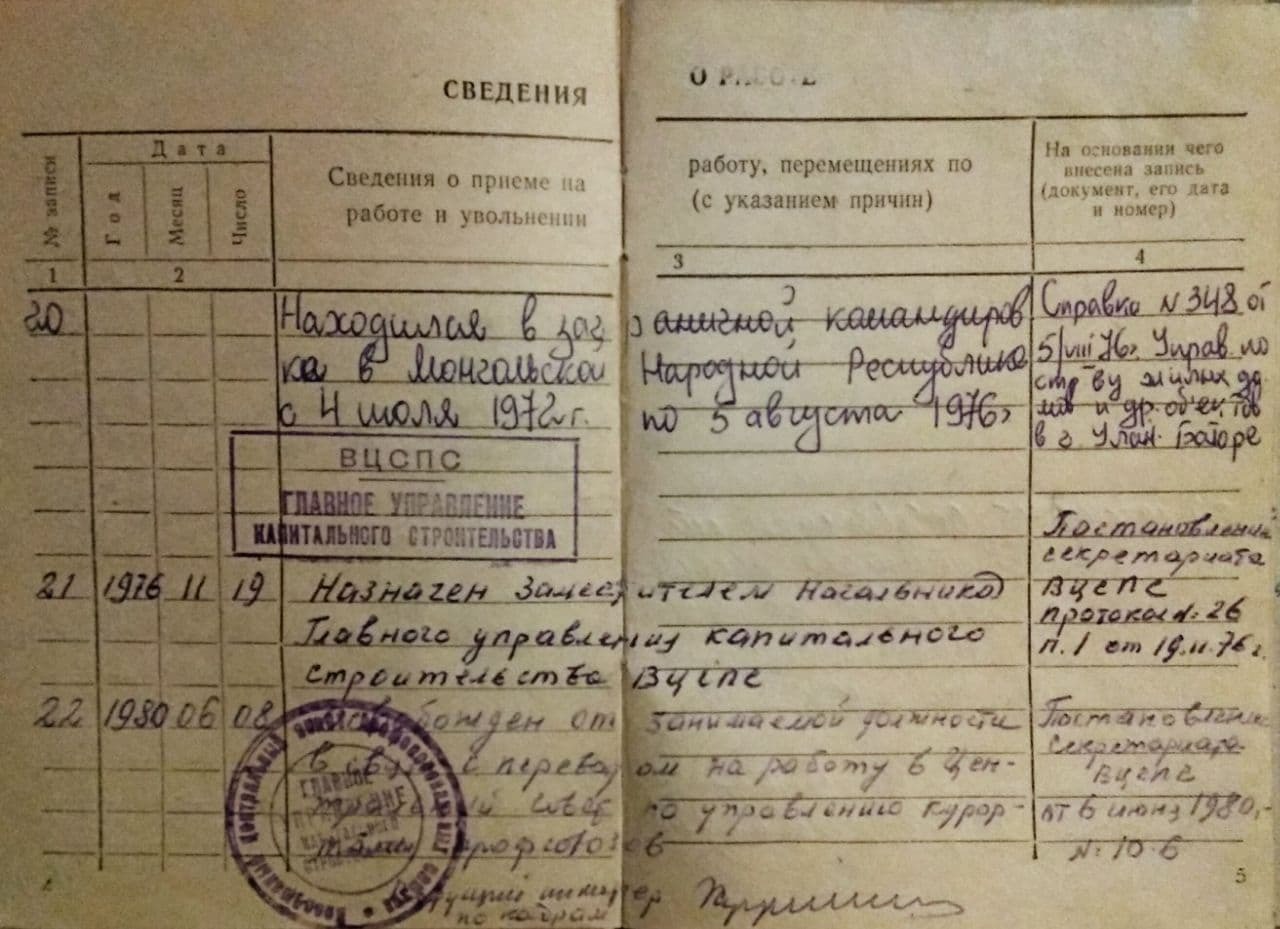 СВЕДЕНИЯ О РАБОТЕ
№ записи
Дата
Год
Месяц
Число
Сведения о приеме на работу, перемещениях по
работе и увольнении (с указанием причин)
На основании чего
внесена запись
(документ, его дата
и номер)
1 2 3 4
20 Находился в заграничной командиров
ка в Монгольской Народной Республике
с 4 июля 1972 г. по 5 августа 1976 г
Справка № 348 от
5/VIII 76г. Управ. по
стр-ву жилых до
мов и др. об'ектов
в г. Улан-Баторе
ВЦСПС
ГЛАВНОЕ УПРАВЛЕНИЕ
КАПИТАЛЬНОГО СТРОИТЕЛЬСТВА
21 1976 11 19 Назначен Заместителем Начальника
Главного управления капитального
строительства ВЦСПС
Постановление
секретариата
ВЦСПС
протокол № 26
п. 1 от 19.11.76 г.
22 1980 06 08 Освобожден от занимаемой должности
в связи с переводом на работу в Цен-
тральный совет по управлению курор-
тами профсоюзов
Постановление
секретариата
ВЦСПС
от 6 июня 1980,
№ 10-6
инспектор
по кадрам
5